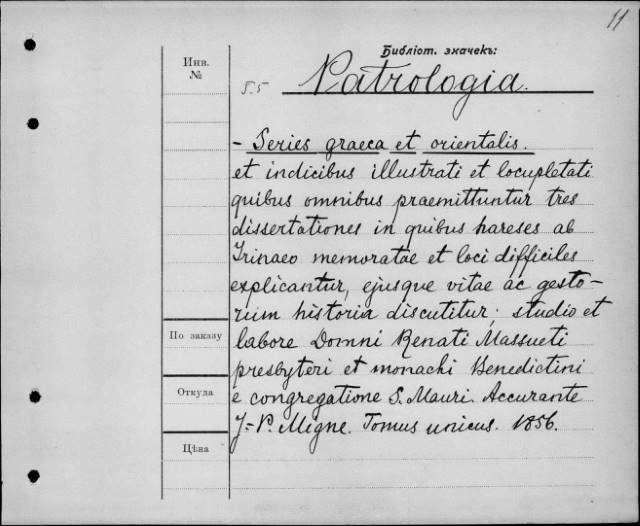 11
Библіот. значекъ:
Инв.
№
55 Patrologia.
- Series graeca et orientalis.
et indicibus illustrati et locupletati
quibus omnibus praemittuntur tres
dissertationes in quibus hareses ab
Irinaeo memoratae et loci difficiles
explicantur, ejusque vitae ac gesto-
rum historia discutitur; studio et
labore Domni Renati Massueti
presbyteri et monachi Benedictini
e congregatione S. Mauri. Accurante
J.-P. Migne. Tomus unicus. 1856.
По заказу
Откуда
Цѣна